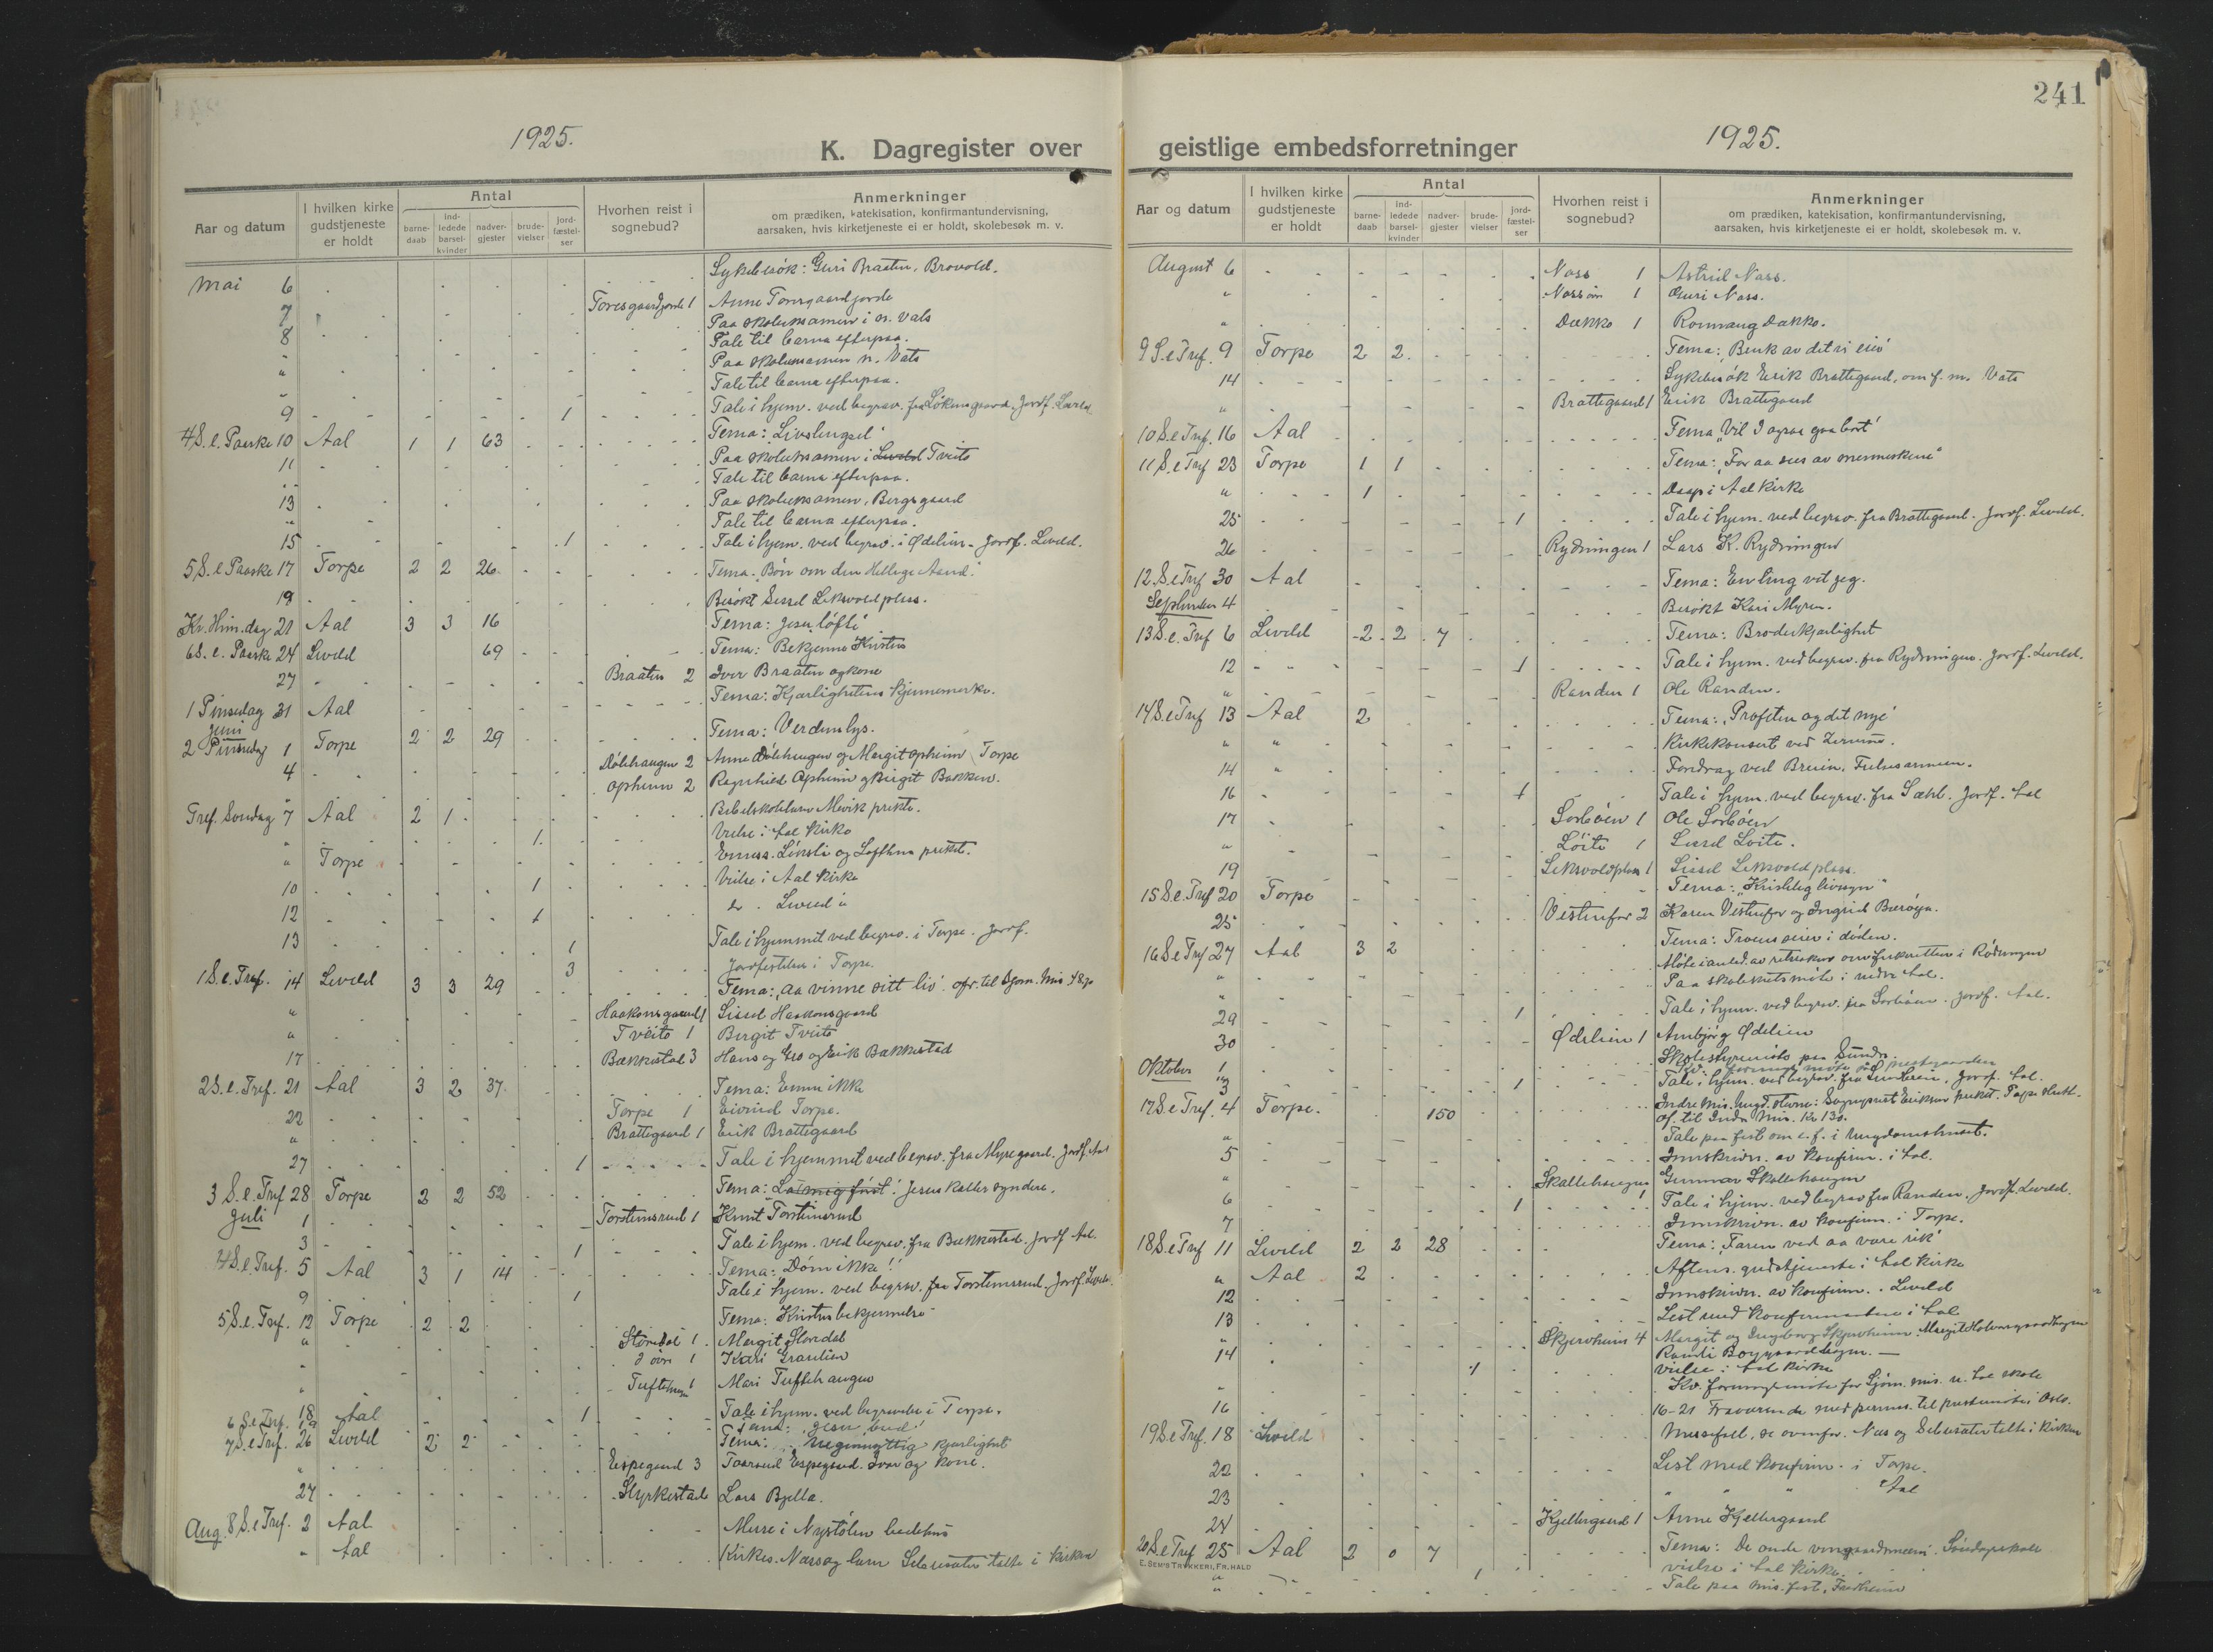 241
1925.
K. Dagregister over
Aar og datum
I hvilken kirke gudstjeneste er holdt
Antal
barne-daab
ind-ledede barsel-kvinder
nadver-gjester
brude-vielser
jord-fæstel-ser
Hvorhen reist i sognebud?
Anmerkninger
om prædiken, katekisation, konfirmantundervisning,
aarsaken, hvis kirketjeneste ei er holdt, skolebesøk m. v.
Mai 6 Sykebesök: Guri Braaten, Brovold.
7 Toresgaardjorde 1 Anne Toresgaardjorde
8 Paa skoleeksamen i n. Vats
Tale til barna efterpaa.
" Paa skoleeksamen n. Vats
Tale til barna efterpaa.
9 1 Tale i hjem. ved begrav. fra Lökensgaard. Jordf. Leveld
4 S. e. Paaske 10 Aal 1 1 63 Tema: "Livslengsel"
11 Paa skoleeksamen i Leveld Tveito
Tale til barna efterpaa.
13 Paa skoleeksamen, Bergsgaard
" Tale til barna efterpaa.
15 1 Tale i hjem. ved begrav. i Ødelien - Jordf. Leveld.
5 S. e Paaske 17 Torpe 2 2 26 Tema. "Bön om den Hellige Aand."
19 Besökt Sissel Leksvoldplass.
Kr. Him. dag 21 Aal 3 3 16 Tema: Jesu löfte
6 S. e. Paaske 24 Leveld 69 Tema: Bekjenne Kristus
27 Braaten 2 Iver Braaten og kone
1 Pinsedag 31 Aal Tema: Kjærlighetens kjennemerke.
Juni
2 Pinsedag 1 Torpe 2 2 29 Tema: Verdens lys.
4 Dölehaugen 2 Anne Dölehaugen og Margit Opheim Torpe
" Opheim 2 Ragnhild Opheim og Birgit Bakken.
Tref. Sondag 7 Aal 2 1 Bibelskolelærer Mevik prekte.
" 1 Vielse i Aal kirke
" Torpe Emiss. Linsli og Lofthus prekte.
10 1 Vielse i Aal kirke
12 1 " Leveld "
13 1 Tale i hjemmet ved begrav. i Torpe. Jordf.
3 Jordfestelser i Torpe.
1 S. e. Tref. 14 Leveld 3 3 29 Tema: "Aa vinne sitt liv". ofr. til Sjøm. Mis 48p
" Haakonsgaard 1 Sissel Haakonsgaard
" Tveito 1 Birgit Tveito
17 Bækkestad 3 Hans og Gro og Erik Bækkestad
2 S. e. Tref. 21 Aal 3 2 37 Tema: Emne ikke
22 Torpe 1 Eivind Torpe.
" Brattegaard 1 Erik Brattegaard
27 1 Tale i hjemmet ved begrav. fra Myregaard. Jordf. Aal
3 S. e. Tref 28 Torpe 2 2 52 Tema: "La mig först". Jesus kaller syndere.
Juli 1 Torsteinsrud 1 Knut Torsteinsrud
3 1 Tale i hjem. ved begrav. fra Bækkestad. Jordf Aal.
4 S. e. Tref. 5 Aal 3 1 14 Tema: Döm ikke!
9 1 Tale i hjem. ved begrav. fra Torsteinsrud. Jordf. Leveld.
5 S. e. Tref. 12 Torpe 2 2 Tema. Kristusbekjennelse
" Storedal 1 Margit Storedal
" 1 Kari Granlien
" Tuftehaugen 1 Mari Tuftehaugen
18 1 Tale i hjem. ved begravelse i Torpe.
6 S e Tref. 19 Aal Tema: Jesu bud
7 S. e Tref. 26 Leveld 2 2 Tema: Uegennyttig kjærlighet
" Espegaard 3 Taaraand Espegaard. Ivar og kone.
27 Styrkestad Lars Bjella.
Aug. 8 S. e Tref. 2 Aal Messe i Nystölen bedehus
" Aal Kirkes. Næss og lærer Seberseter talte i kirken
geistlige embedsforretninger
1925.
Aar og datum
I hvilken kirke gudstjeneste er holdt
Antal
barne-daab
ind-ledede barsel-kvinder
nadver-gjester
brude-vielser
jord-fæstel-ser
Hvorhen reist i sognebud?
Anmerkninger
om prædiken, katekisation, konfirmantundervisning,
aarsaken, hvis kirketjeneste ei er holdt, skolebesøk m. v.
August 6 Næss 1 Astrid Næss.
" 1 Guri Næss.
" Dækko 1 Rønnaug Dækko.
9 S. e Tref. 9 Torpe 2 2 Tema: "Bruk av det vi eier"
14 Sykebesök Erik Brattegaard, om f. m. Vats
" Brattegaard 1 Erik Brattegaard
10 S. e Tref. 16 Aal Tema "Vil I ogsaa gaa bort"
11 S. e Tref 23 Torpe 1 1 Tema: "For aa sees av menneskene"
" 1 Daap i Aal kirke
25 1 Tale i hjem. ved begrav. fra Brattegaard. Jordf. Leveld.
26 Rydningen 1 Lars K. Rydningen
12 S. e Tref 30 Aal Tema: En ting vet jeg.
September 4 Besökt Kari Myren.
13 S. e. Tref 6 Leveld 2 2 7 Tema: Broderkjærlighet
12 1 Tale i hjem. ved begrav. fra Rydningen. Jordf. Leveld.
" Randen 1 Ole Randen.
14 S. e Tref 13 Aal 2 Tema: "Profeten og det nye"
" " Kirkekonsert ved
14 " Foredrag ved Breien, Frelsesarmeen.
16 1 Tale i hjem. ved begrav. fra Sæhl. Jordf. Aal
17 Sorböen 1 Ole Sorböen
" Löite 1 Sissel Löite.
19 Leksvoldplass 1 Sissel Leksvold plass.
15 S. e. Tref 20 Torpe Tema: "Kristelig livssyn"
25 Vestenfor 2 Karen Vestenfor og Ingrid Bæröya.
16 S e Tref 27 Aal 3 2 Tema: Troens seier i döden.
" Möte i anled. av rettssaken om fiskeretten i Rödungen
" Paa skolekretsmöte i nedre Aal.
29 1 Tale i hjem. ved begrav. fra Sorböen. Jordf. Aal.
30 Ødelien 1 Arnbjörg Ødelien
Oktober 1 Skolestyremöte paa Sundre.
" Kv. forenings möte paa prestegaarden
3 1 Tale i hjem. ved begrav. fra . Jordf. Aal.
17 S. e Tref. 4 Torpe. 150 Indre Mis. ungd. stevne: Sogneprest Eriksen prekte. Torpe
of. til Indre Mis. kr 130.
" Tale paa fest om e. f. i Ungdomshuset.
5 Innskrivn. av konfirm. i Aal.
" Skallehaugen 1 Gunnar Skallehaugen
6 1 Tale i hjem. ved begrav fra Randen. Jordf. Leveld.
7 Innskrivn. av konfirm. i Torpe.
18 S. e Tref 11 Leveld 2 2 28 Tema: "Faren ved aa være rik"
" Aal 2 Aftens. gudstjeneste i Aal kirke
12 Innskrivn. av konfirm. i Leveld
13 Lest med konfirmantene i Aal
" Skjervheim 4 Margit og Ingeborg Skjervheim. Margit Holversgaardhagen
14 Randi
1 Vielse i Aal kirke
" Kv. foreningsmöte for Sjöm. mis. u. Aal skole
16 16-21 Fraværende med permis. til prestemöte i Oslo.
19 S e Tref. 18 Leveld Messefall, se ovenfor. Næs og Seberseter talte i kirken
22 Lest med konfirm. i Torpe.
23 " " " Aal
24 Kjellergaard 1 Anne Kjellergaard
20 S. e Tref 25 Aal 2 0 7 Tema: De onde vingaardsmenn. Söndagsskole
" 1 vielse i Aal kirke.
" Tale paa mis. fest, Fredheim
E. SEM'S TRYKKERI, FR.HALD